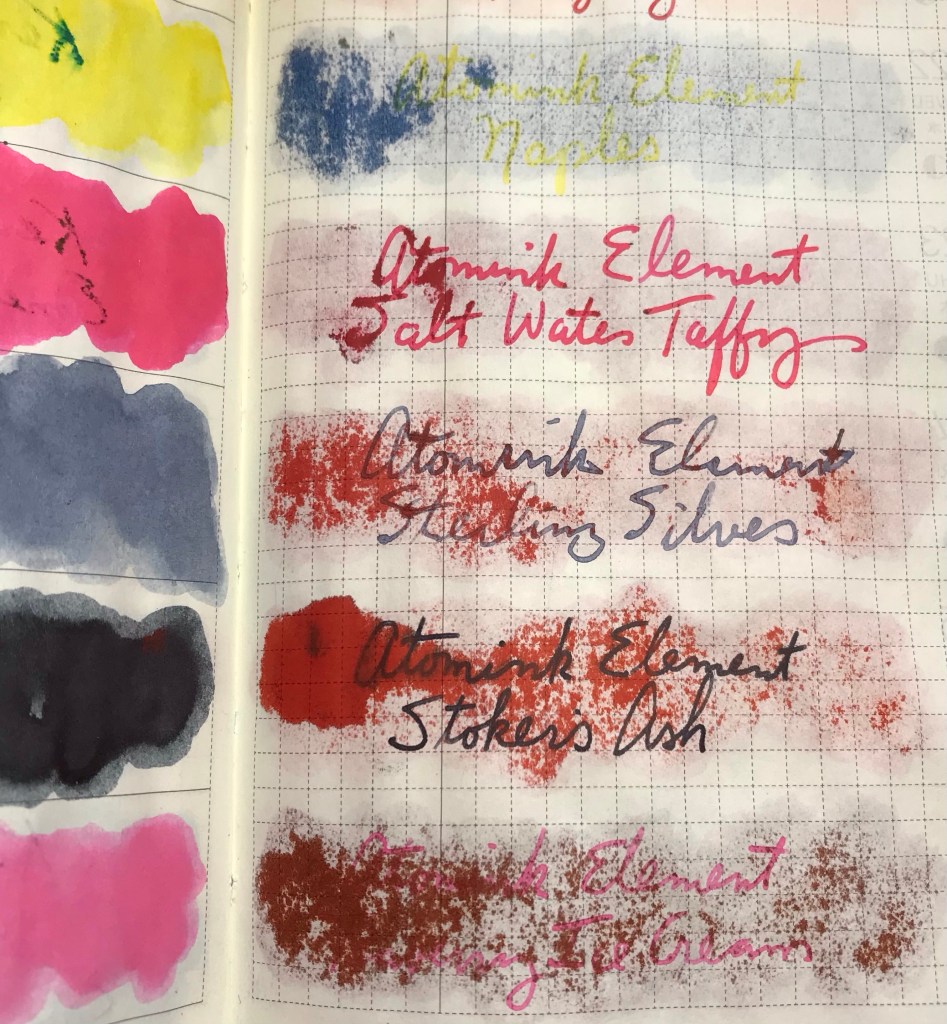 Atomink Element
Naples
Atomink Element
Salt Water Taffy
Atomink Element
Sterling Silver
Atomink Element
Stoker's Ash
Atomink Element
Ice Cream